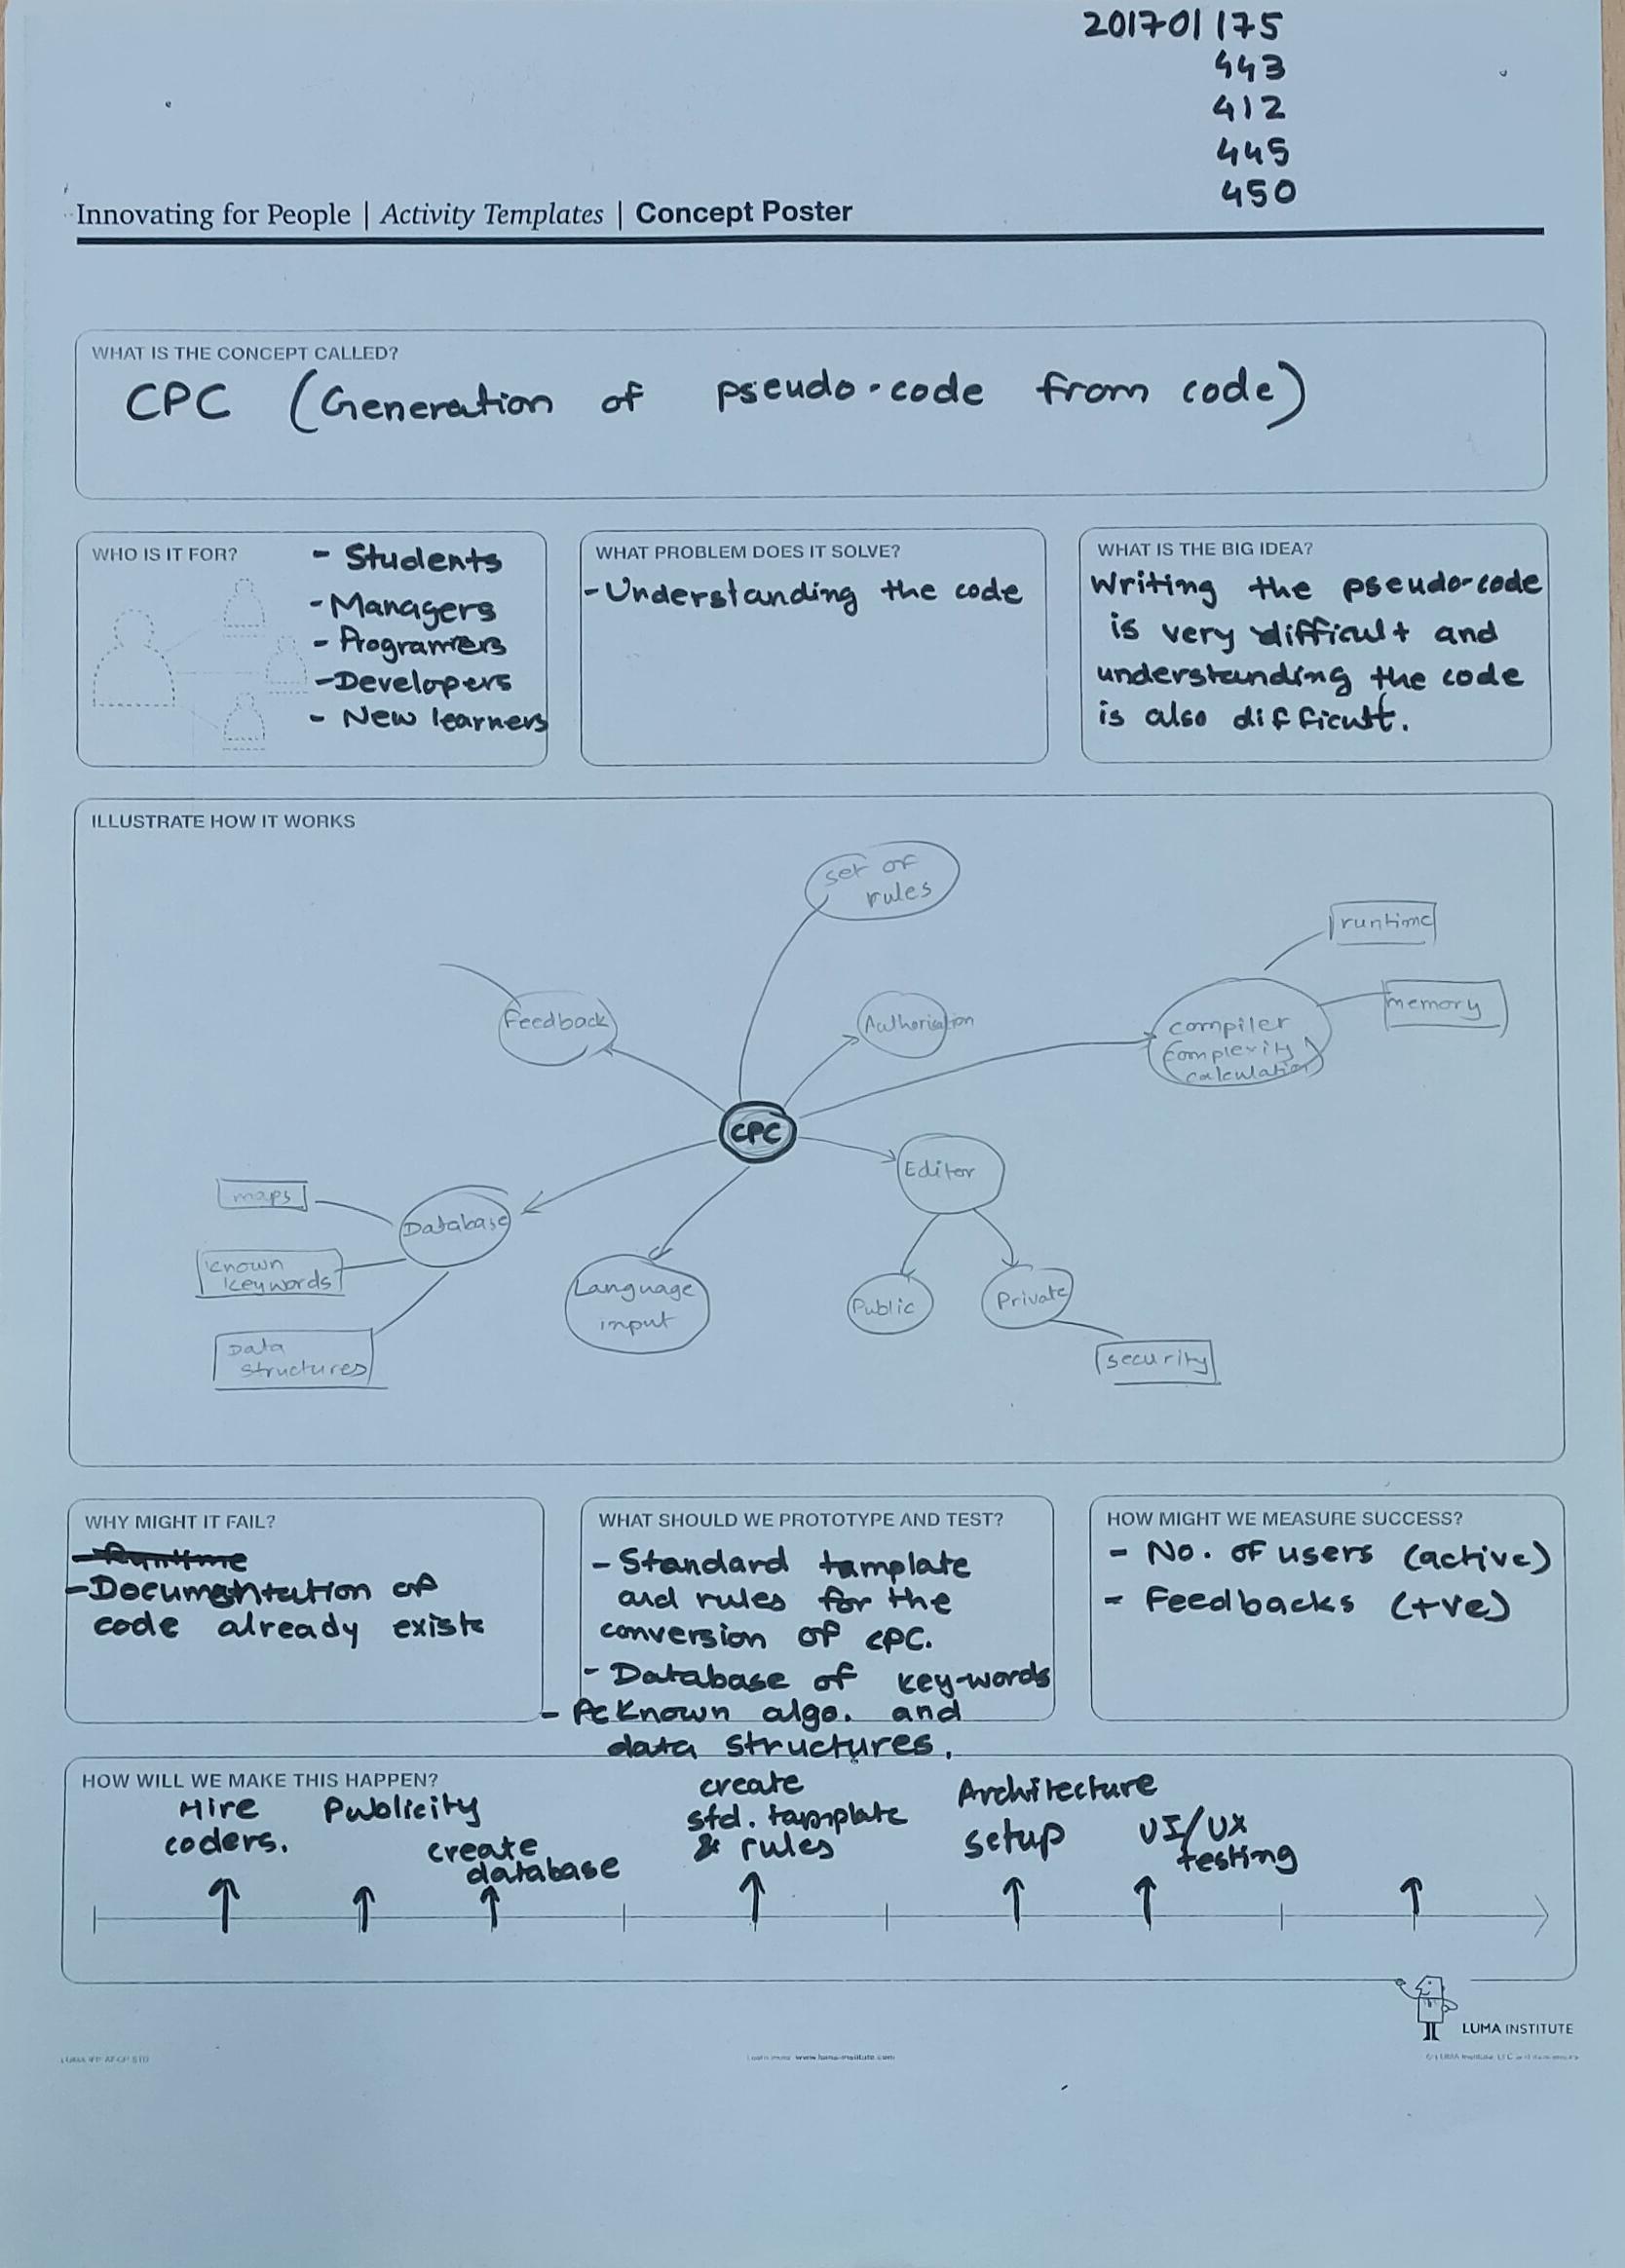 201701175
443
412
445
450
Innovating for People | Activity Templates | Concept Poster
WHAT IS THE CONCEPT CALLED?
CPC (Generation of pseudo-code from code)
WHO IS IT FOR?
- Students
- Managers
- Programers
- Developers
- New learners
WHAT PROBLEM DOES IT SOLVE?
- Understanding the code
WHAT IS THE BIG IDEA?
Writing the pseudo-code
is very difficult and
understanding the code
is also difficult.
ILLUSTRATE HOW IT WORKS
set of
rules
runtime
memory
Feedback
Authorisation
compiler
(complexity
calculation)
CPC
Editor
maps
Database
known
keywords
Language
input
Public
Private
Data
structures
security
WHY MIGHT IT FAIL?
- Runtime
- Documentation of
code already exists
WHAT SHOULD WE PROTOTYPE AND TEST?
- Standard tamplate
and rules for the
conversion of CPC.
- Database of key-words
- Known algo. and
data structures.
HOW MIGHT WE MEASURE SUCCESS?
- No. of users (active)
- Feedbacks (+ve)
HOW WILL WE MAKE THIS HAPPEN?
Hire
coders.
Publicity
create
database
create
std. tamplate
& rules
Architecture
setup
UI/UX
testing
LUMA INSTITUTE
www.luma-institute.com